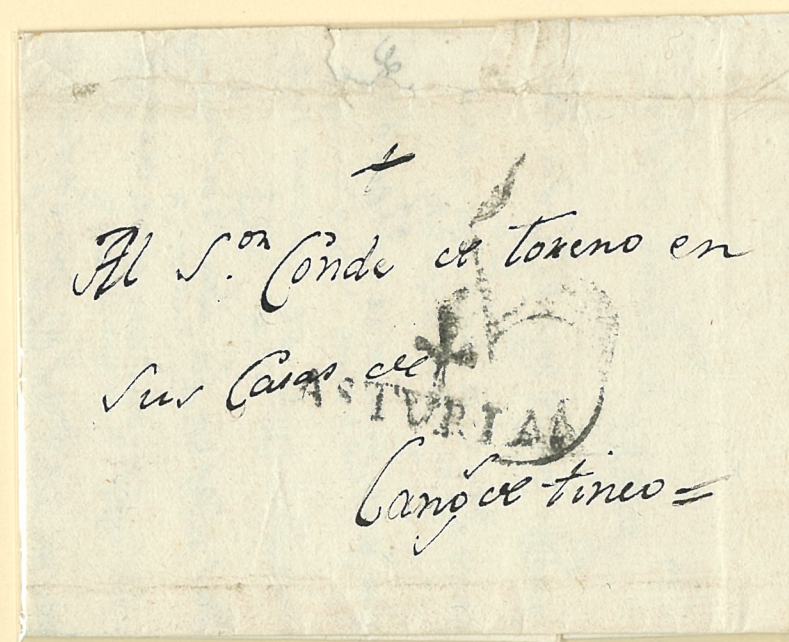 +
Al S.on Conde de toreno en
sus Casas de
ASTURIAS
Cangs de tineo =